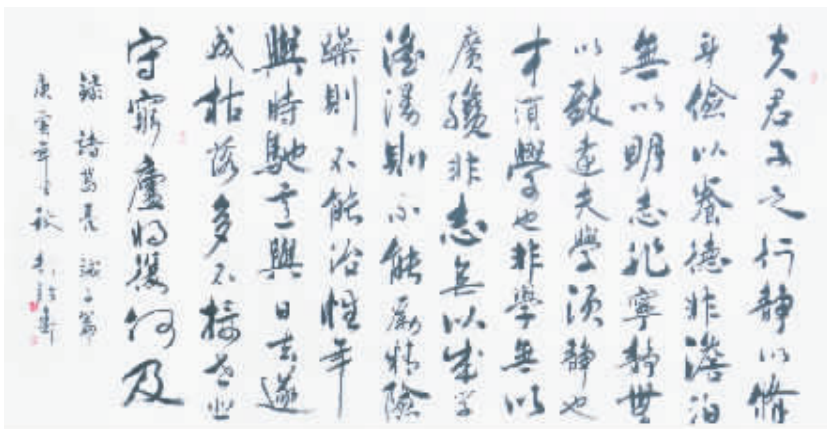 夫君子之行靜以脩
身儉以養德非澹泊
無以明志非寧靜無
以致遠夫學須靜也
才須學也非學無以
廣纔非志無以成學
淫漫則不能勵精險
躁則不能治性年
與時馳意與日去遂
成枯落多不接世悲
守窮廬將復何及
錄諸葛亮誡子篇
庚寅年 秋 書